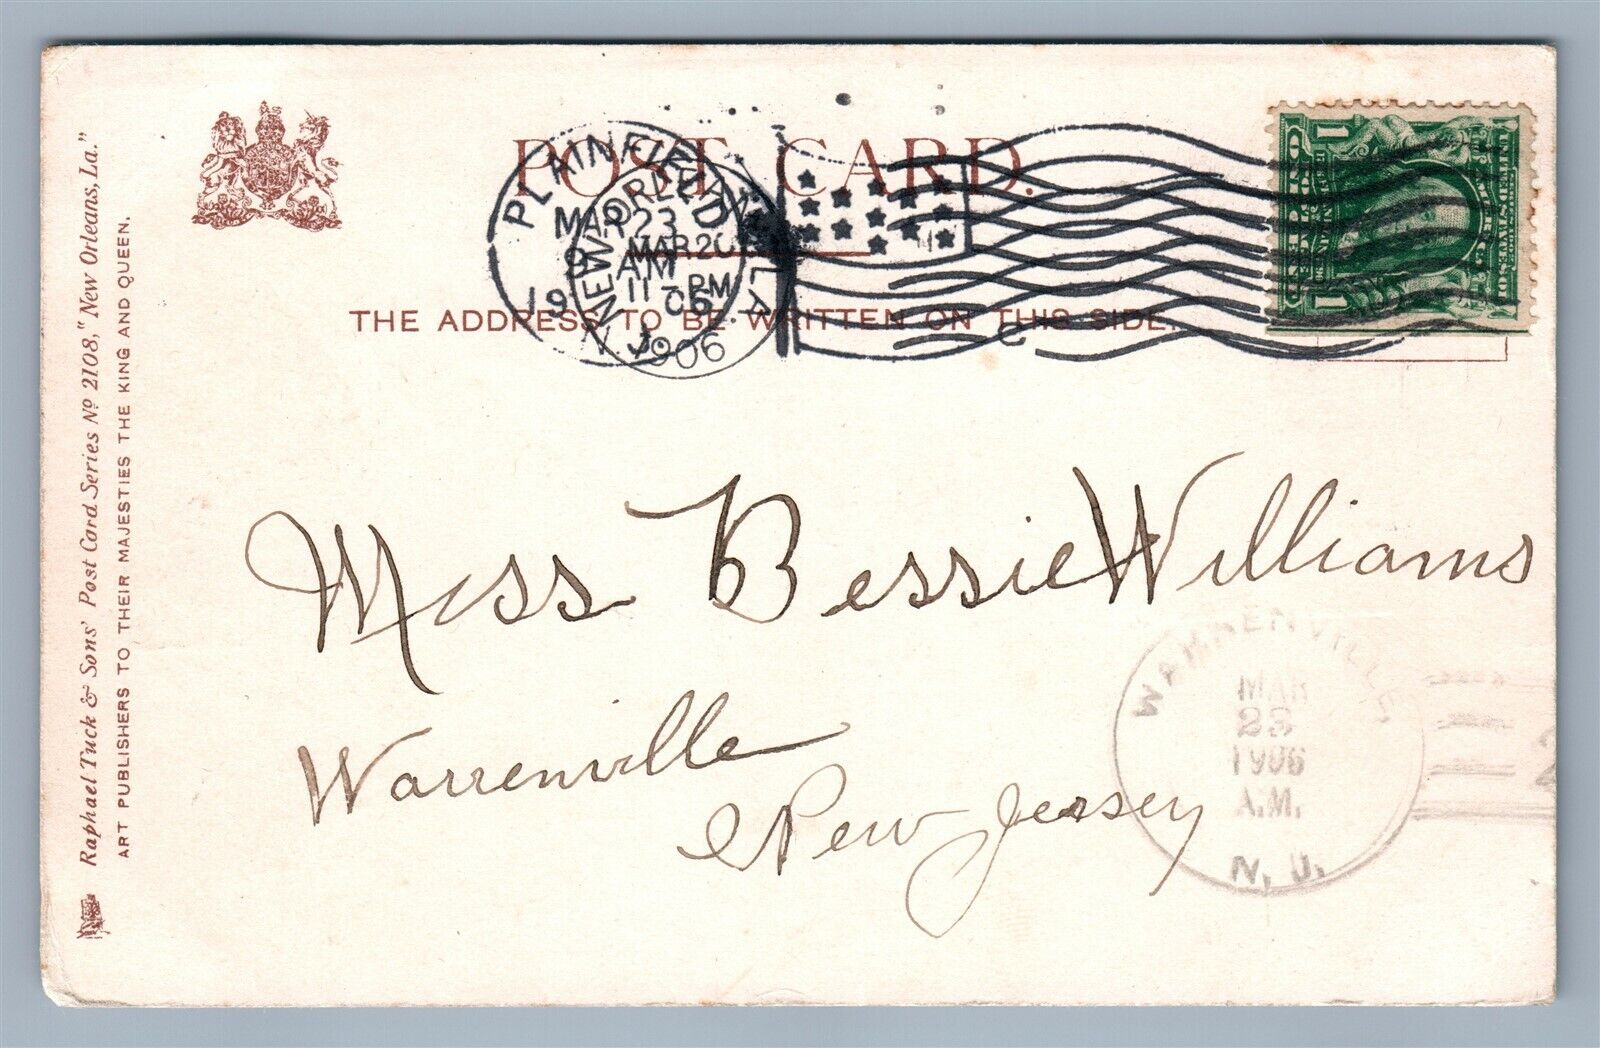 POST CARD.
THE ADDRESS TO BE WRITTEN ON THIS SIDE.
Raphael Tuck & Sons' Post Card Series No 2108, "New Orleans, La."
ART PUBLISHERS TO THEIR MAJESTIES THE KING AND QUEEN.
PLAINFIELD
MAR 23
9 AM
1906
N.J.
NEW ORLEANS, LA.
MAR 20
11 - PM
1906
C
1 1
Miss Bessie Williams
Warrenville
New Jersey
WARRENVILLE
MAR
23
1906
A.M.
N. J.
2